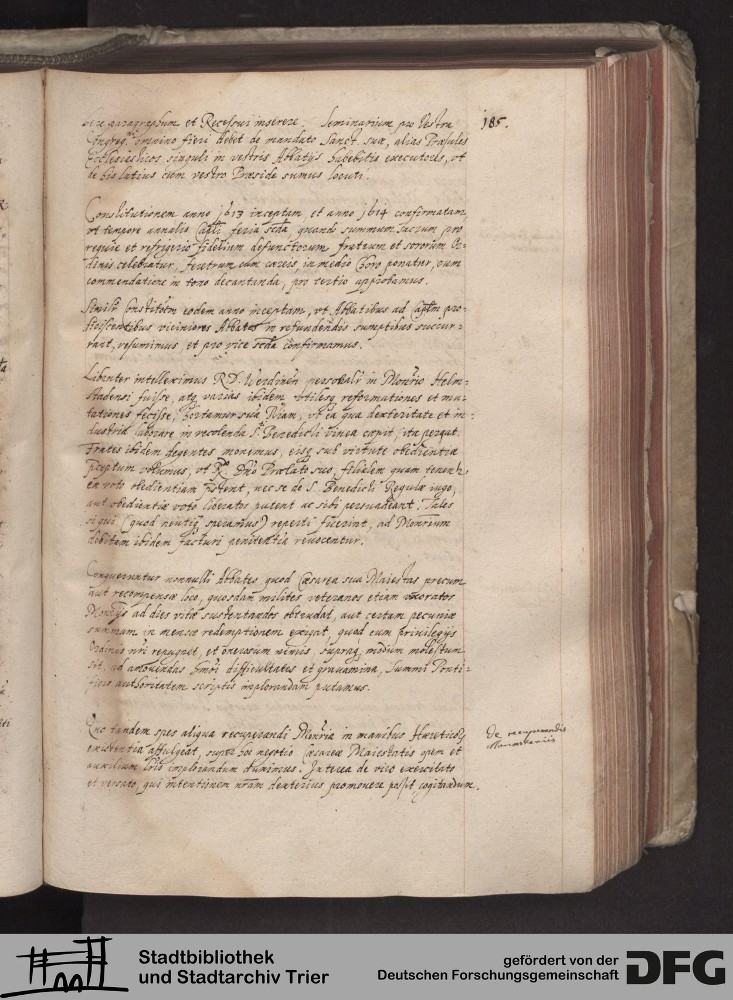 hunc paragraphum et Recessui inserere. Seminarium pro Vestra
Congreg.ne omnino fieri debet de mandato Sanct. suæ, alias Præsules
Ecclesiasticos singuli in vestris Abbatijs habebitis executores, vt
de his latius cum vestro Præside sumus locuti.
185.
Constitutionem anno 1613 inceptam, et anno 1614 confirmatam
vt tempore annalis Capli feria 2da, quando summum sacrum pro
requie et refrigerio fidelium defunctorum fratrum et sororum Or-
dinis celebratur, feretrum cum cereis, in medio Choro ponatur, cum
commendatione in tono decantanda, pro tertio approbamus.
Similr Constitoem eodem anno inceptam, vt Abbatibus ad Caplm pro-
ficiscentibus viciniores Abbates in refundendis sumptibus succur-
rant, resumimus et pro vice 2da confirmamus.
Libenter intelleximus R.D. Werdinen personalr in Monrio Helm-
stadensi fuisse, atq varias ibidem vtilesq reformationes et mu-
tationes fecisse, hortamur suā Rūam, vt ea qua dexteritate et in-
dustria laborare in recolenda S.ti Benedicti vinea cœpit, ita pergat.
Frates ibidem degentes monemus, eisq sub virtute obedientiæ
pceptum volumus, vt R.do Dno Prælato suo, filialem quam tenentr
ex voto obedientiam pstent, nec se de S. Benedicti Regulæ iugo,
aut obedientiæ voto liberatos putent ac sibi persuadeant. Tales
si qui (quod neutiq speramus) reperti fuerint, ad Monrium
debitam ibidem facturi penitentiā reuocentur.
Conqueruntur nonnulli Abbates quod Cæsarea sua Maiestas precum
aut recompensæ loco, quosdam milites veteranos etiam vxoratos
Monrijs ad dies vitæ sustentandos obtrudat, aut certam pecuniæ
summam in mensæ redemptionem exigat, quod cum priuilegijs
Ordinis nri repugnet, et onerosum nimis, supraq modum molestum
sit, ad amouendas hmoi difficultates et grauamina, Summi Ponti-
ficis authoritatem scriptis implorandam putamus.
Quo tandem spes aliqua recuperandi Monria in manibus Hæreticor
existentia affulgeat, super hoc negotio Cæsareæ Maiestatis opem et
auxilium implorandum duximus. Interea de viro exercitato
et versato, qui intentionem nram dexterius promouere possit cogitandum.
De recuperandis
Monasteriis
Stadtbibliothek
und Stadtarchiv Trier
gefördert von der
Deutschen Forschungsgemeinschaft
DFG